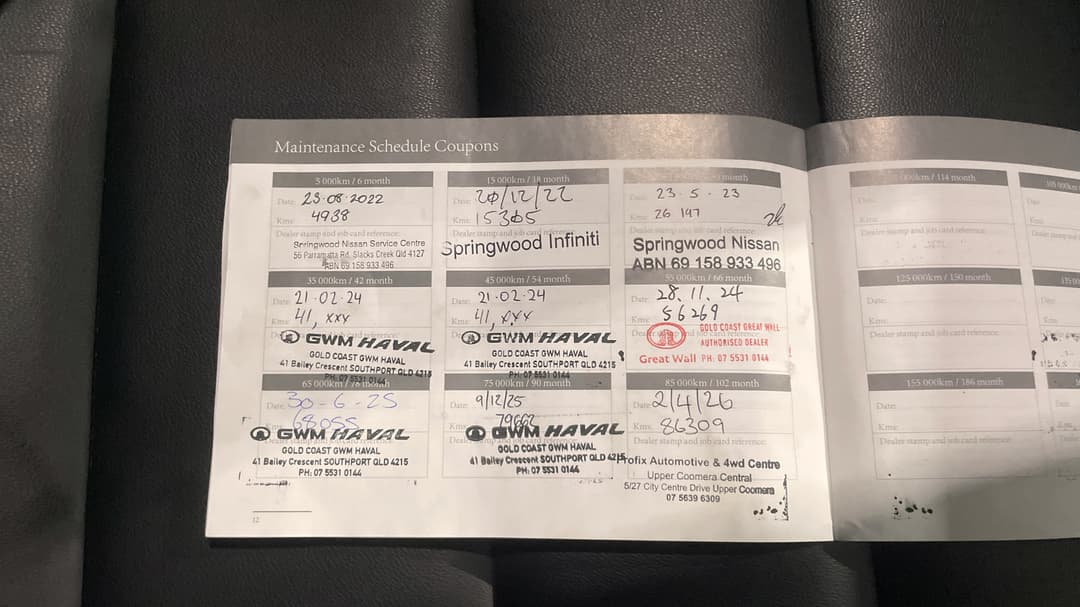 Maintenance Schedule Coupons
5 000km / 6 month
Date: 25·08·2022
Kms: 4938
Dealer stamp and job card reference:
Springwood Nissan Service Centre
56 Parramatta Rd, Slacks Creek Qld 4127
ABN 69 158 933 496
15 000km / 18 month
Date: 20/12/22
Kms: 15365
Dealer stamp and job card reference:
Springwood Infiniti
month
Date: 23·5·23
Kms: 26 197
Dealer stamp and job card reference:
Springwood Nissan
ABN 69 158 933 496
35 000km / 42 month
Date: 21·02·24
Kms: 41, xxx
GWM HAVAL
GOLD COAST GWM HAVAL
41 Bailey Crescent SOUTHPORT QLD 4215
PH: 07 5531 0144
45 000km / 54 month
Date: 21·02·24
Kms: 41, xxx
GWM HAVAL
GOLD COAST GWM HAVAL
41 Bailey Crescent SOUTHPORT QLD 4215
PH: 07 5531 0144
55 000km / 66 month
Date: 28.11.24
Kms: 56269
GOLD COAST GREAT WALL
AUTHORISED DEALER
Great Wall PH: 07 5531 0144
65 000km / 78 month
Date: 30-6-25
Kms: 68055
GWM HAVAL
GOLD COAST GWM HAVAL
41 Bailey Crescent SOUTHPORT QLD 4215
PH: 07 5531 0144
75 000km / 90 month
Date: 9/12/25
Kms: 79662
GWM HAVAL
GOLD COAST GWM HAVAL
41 Bailey Crescent SOUTHPORT QLD 4215
PH: 07 5531 0144
85 000km / 102 month
Date: 2/4/26
Kms: 86309
Dealer stamp and job card reference:
Profix Automotive & 4wd Centre
Upper Coomera Central
5/27 City Centre Drive Upper Coomera
07 5639 6309
12
000km / 114 month
Date:
Kms:
Dealer stamp and job card reference:
125 000km / 150 month
Date:
Kms:
Dealer stamp and job card reference:
155 000km / 186 month
Date:
Kms:
Dealer stamp and job card reference:
105 000km
Date
Kms
Dealer stamp and
135 00
Date:
Kms:
Dealer stam
Date:
Kms:
Dealer